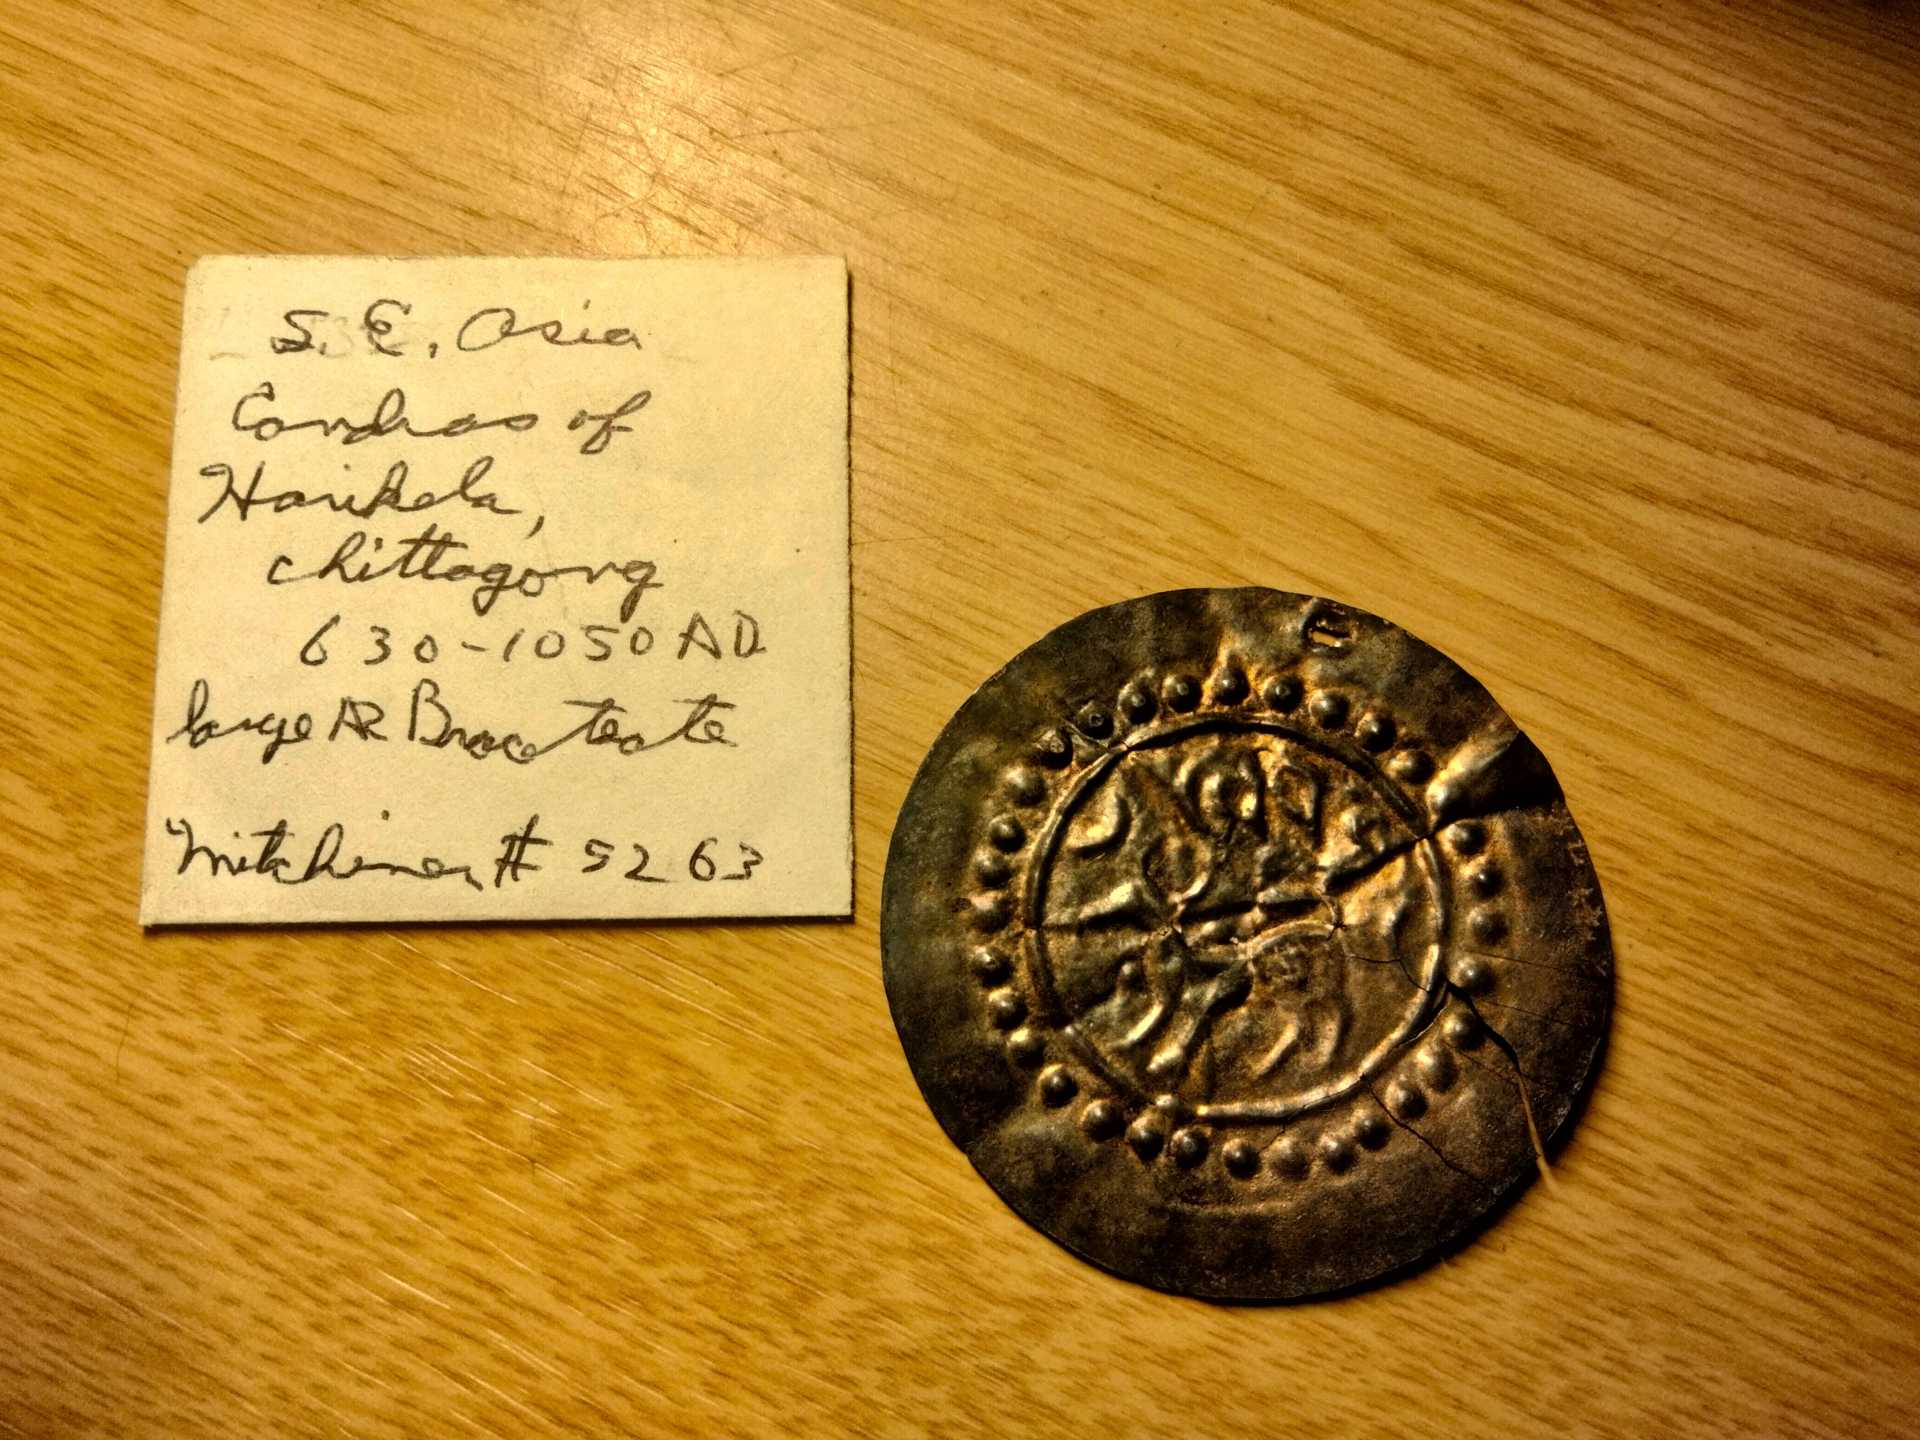 S. E. Asia
Candras of
Harikela,
chittagong
630-1050 AD
large AR Bracteate
Mitchiner # 5263